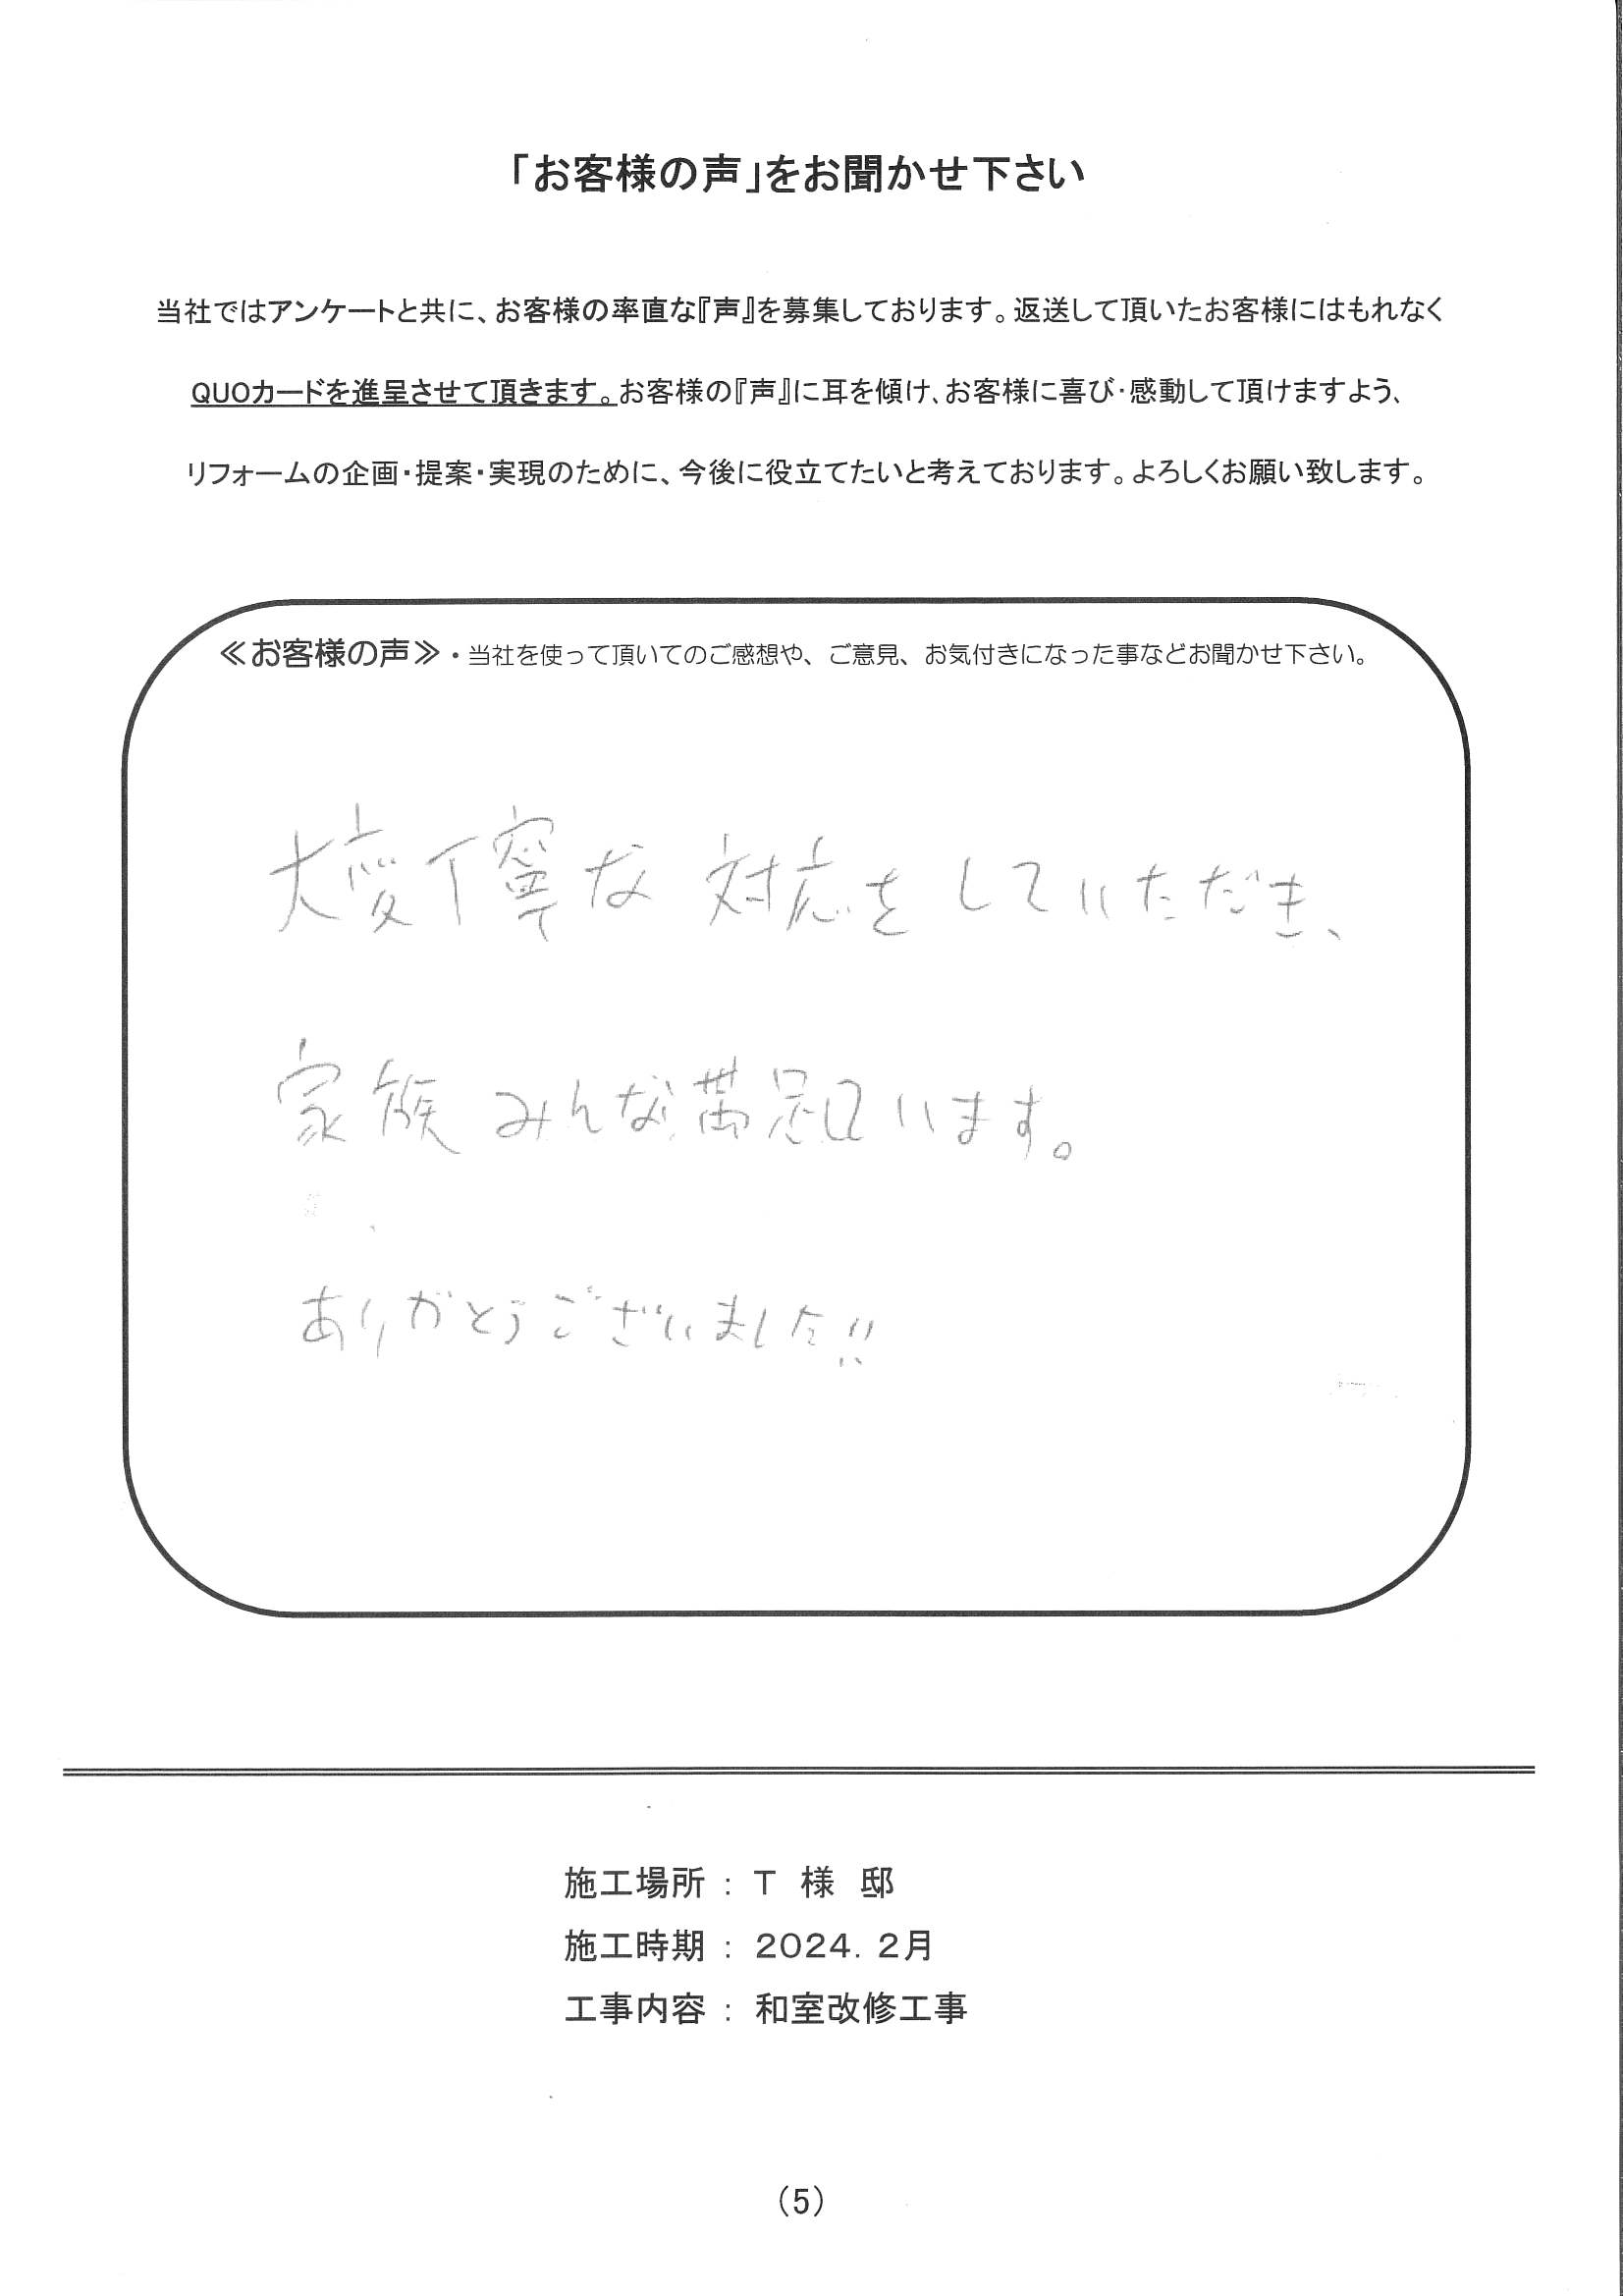 「お客様の声」をお聞かせ下さい
当社ではアンケートと共に、お客様の率直な『声』を募集しております。返送して頂いたお客様にはもれなく
QUOカードを進呈させて頂きます。お客様の『声』に耳を傾け、お客様に喜び・感動して頂けますよう、
リフォームの企画・提案・実現のために、今後に役立てたいと考えております。よろしくお願い致します。
≪お客様の声≫・当社を使って頂いてのご感想や、ご意見、お気付きになった事などお聞かせ下さい。
大変丁寧な対応をしていただき、
家族みんな満足います。
ありがとうございました!!
施工場所 : T 様 邸
施工時期 : 2024. 2月
工事内容 : 和室改修工事
(5)